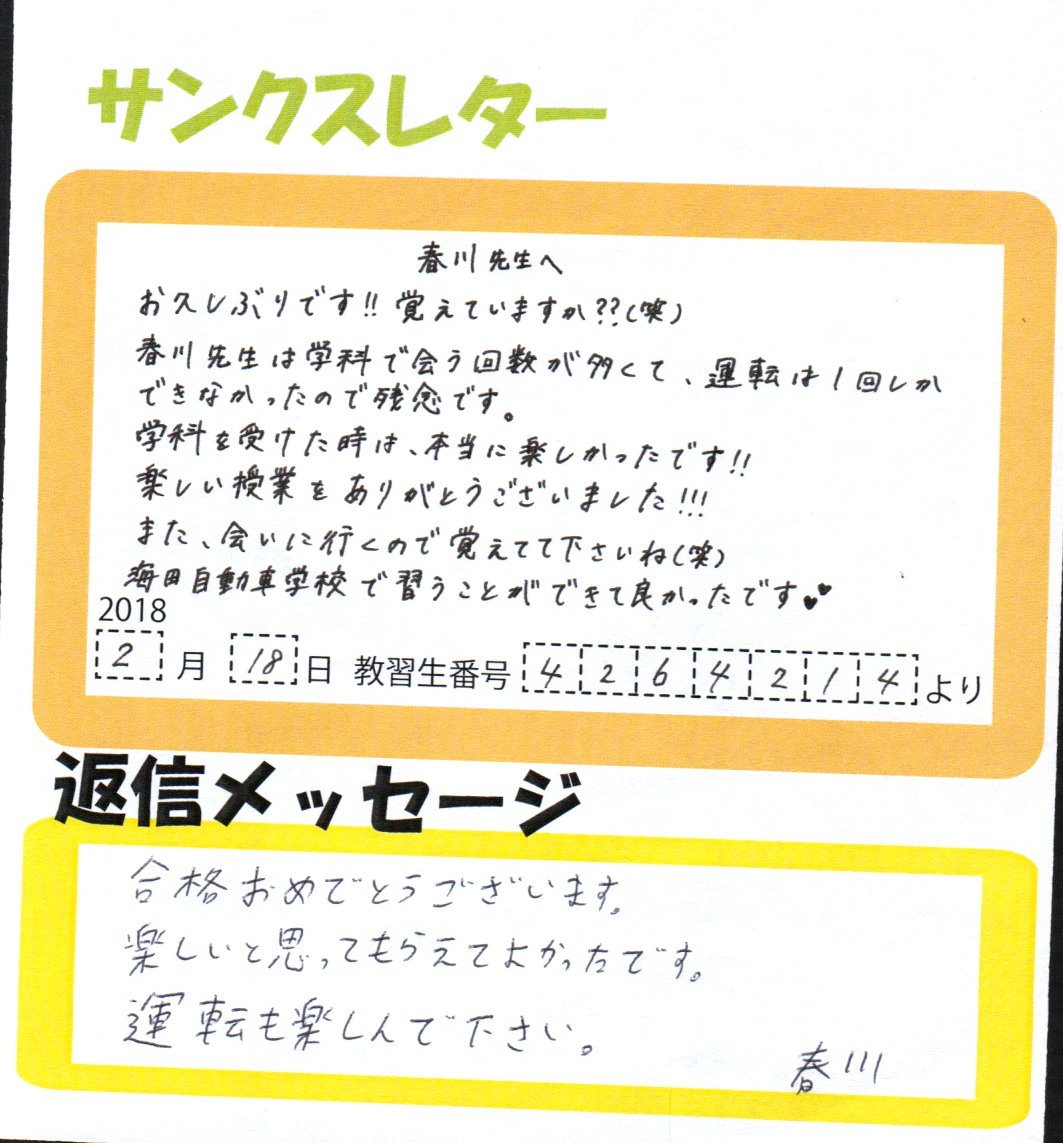 サンクスレター
春川先生へ
お久しぶりです!!覚えていますか??(笑)
春川先生は学科で会う回数が多くて、運転は1回しか
できなかったので残念です。
学科を受けた時は、本当に楽しかったです!!
楽しい授業をありがとうございました!!!
また、会いに行くので覚えてて下さいね(笑)
海田自動車学校で習うことができて良かったです♥♥
2018
2月18日 教習生番号 4264214より
返信メッセージ
合格おめでとうございます。
楽しいと思ってもらえてよかったです。
運転も楽しんで下さい。
春川